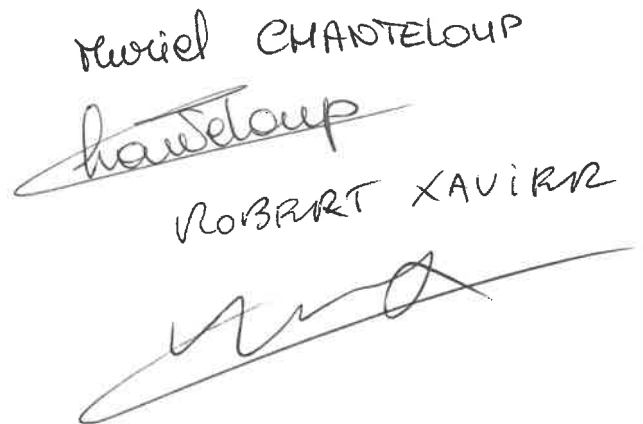 Muriel CHANTELOUP
Chanteloup
ROBERT XAVIER